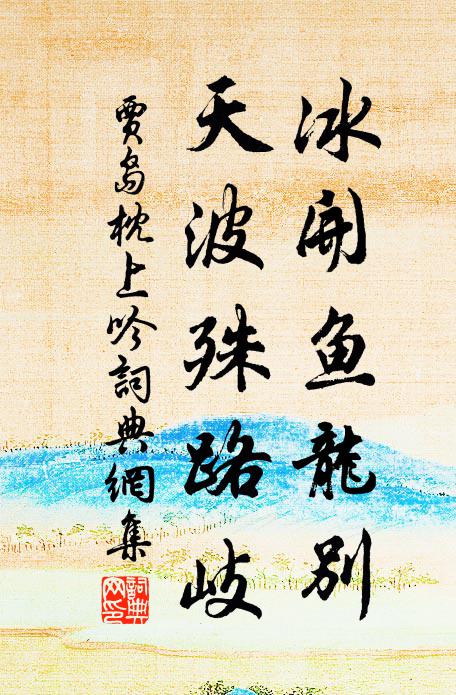 冰開魚龍別
天波殊路岐
賈島枕上吟詞典網集
詞典